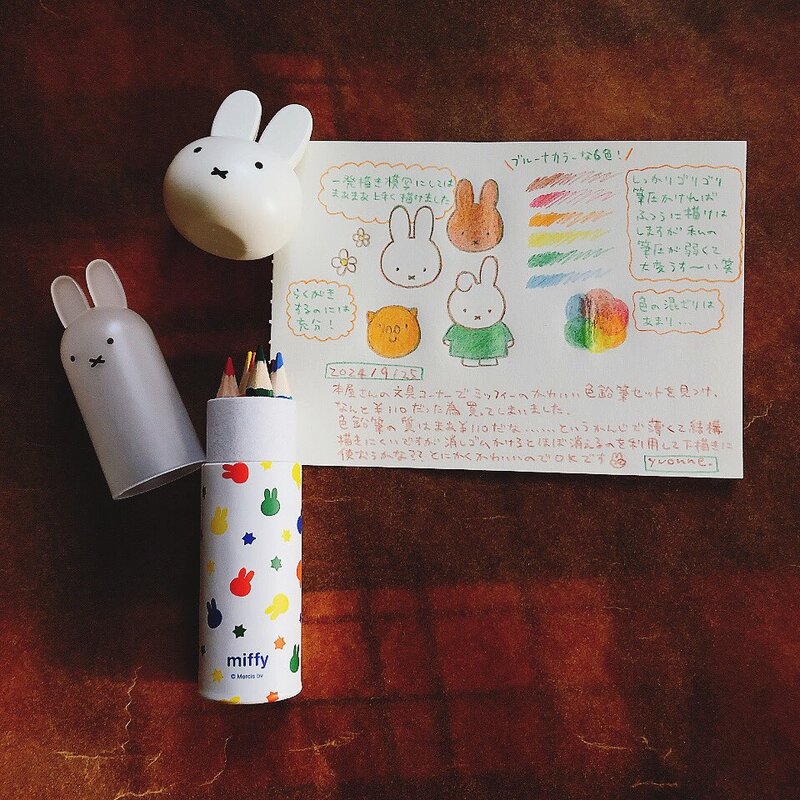 ブルーナカラーな6色！
一発描き模写にしては
まあまあ上手く描けました
しっかりゴリゴリ
筆圧かければ
ふつうに描けは
しますが私の
筆圧が弱くて
大変うす〜い笑
らくがき
するのには
充分！
色の混ざりは
あまり...
2024/9/25
本屋さんの文具コーナーでミッフィーのかわいい色鉛筆セットを見つけ、
なんと¥110だった為買ってしまいました。
色鉛筆の質はまぁ¥110だな......というかんじで薄くて結構
描きにくいですが消しゴムかけるとほぼ消えるのを利用して下描きに
使おうかな?? とにかくかわいいのでOKです
yvonne.
miffy
© Mercis bv